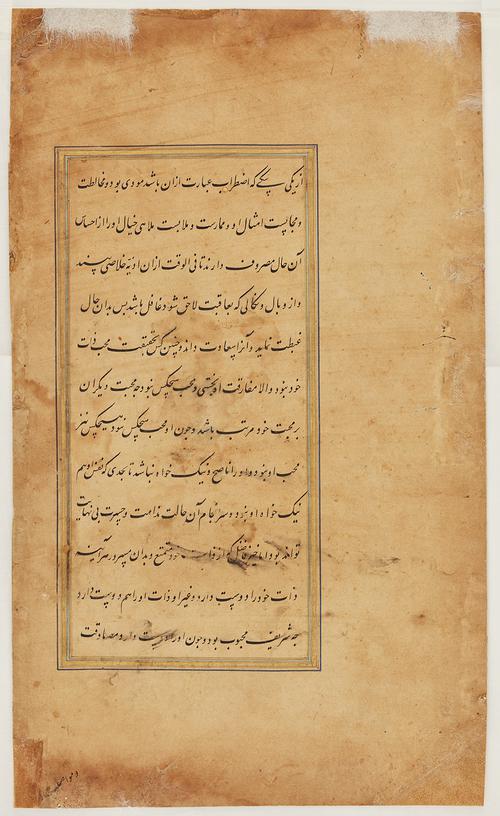 از یکی سگی که اضطراب عبارت ازان باشد موذی بود و مخالطت
و مجالست امثال او و ممارست و ملابست ملاهی خیال او را از احساس
آن حال مصروف دارند تا فی الوقت ازان اذیه خلاصی بیند
و از وبال و نکالی که بعاقبت لاحق شود غافل باشد پس بدان حال
غبطت نماید و آنرا سعادت داند و چنین کس بحقیقت محب ذات
خود نبود والا مفارقت او نجستی و محب هیچکس نبود چه محبت دیگران
بر محبت خود مرتب باشد و چون او محب هیچکس نبود هیچکس نیز
محب او نبود و او را ناصح و نیک خواه نباشد تا بحدی که نفس او هم
نیک خواه او نبود و سرانجام آن حالت ندامت و حسرت بی نهایت
تواند بود و اما خیر فاضل که از ذات خود متمتع و بدان مسرور هر آینه
ذات خود را دوست دارد و غیر او ذات او را هم دوست دارد
چه شریف محبوب بود و چون او را دوست دارد و مصادقت
و مواصلت